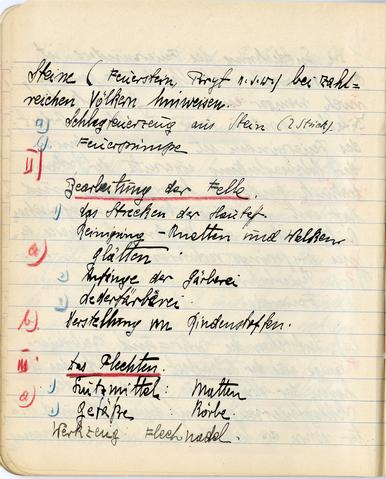 Steine (Feuerstein, Pyrit u.s.w.) bei zahl=
reichen Völkern hinweisen.
a) Schlagfeuerzeug aus Stein (2 Stück).
Feuerpumpe
II
Bearbeitung der Felle.
1) das Strecken der Haut
Reinigung - Kneten und Walken
a) glätten
2) Anfänge der Gärberei
3) Lederfärberei.
b) Herstellung von Rindenstoffen.
III. Das Flechten.
a) 1) Sitzmittel: Matten
2) Gefäße: Körbe.
Werkzeug Flechnadel.